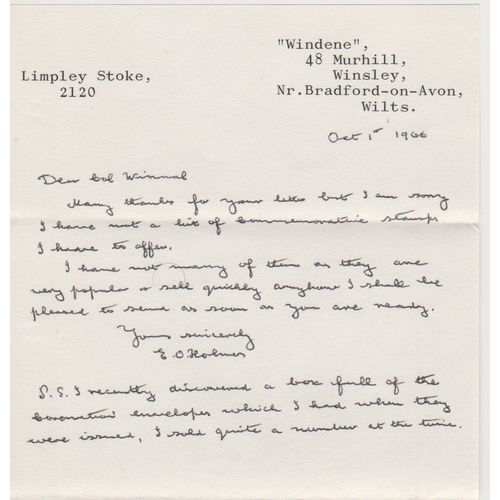 "Windene",
48 Murhill,
Winsley,
Nr.Bradford-on-Avon,
Wilts.
Limpley Stoke,
2120
Oct 1st 1966
Dear Col
Many thanks for your letter but I am sorry
I have not a list of commemorative stamps
I have to offer.
I have not many of them as they are
very popular & sell quickly anyhow I shall be
pleased to send as soon as you are ready.
Yours sincerely
E O Holmes
P.S. I recently discovered a box full of the
Coronation envelopes which I had when they
were issued, I sold quite a number at the time.